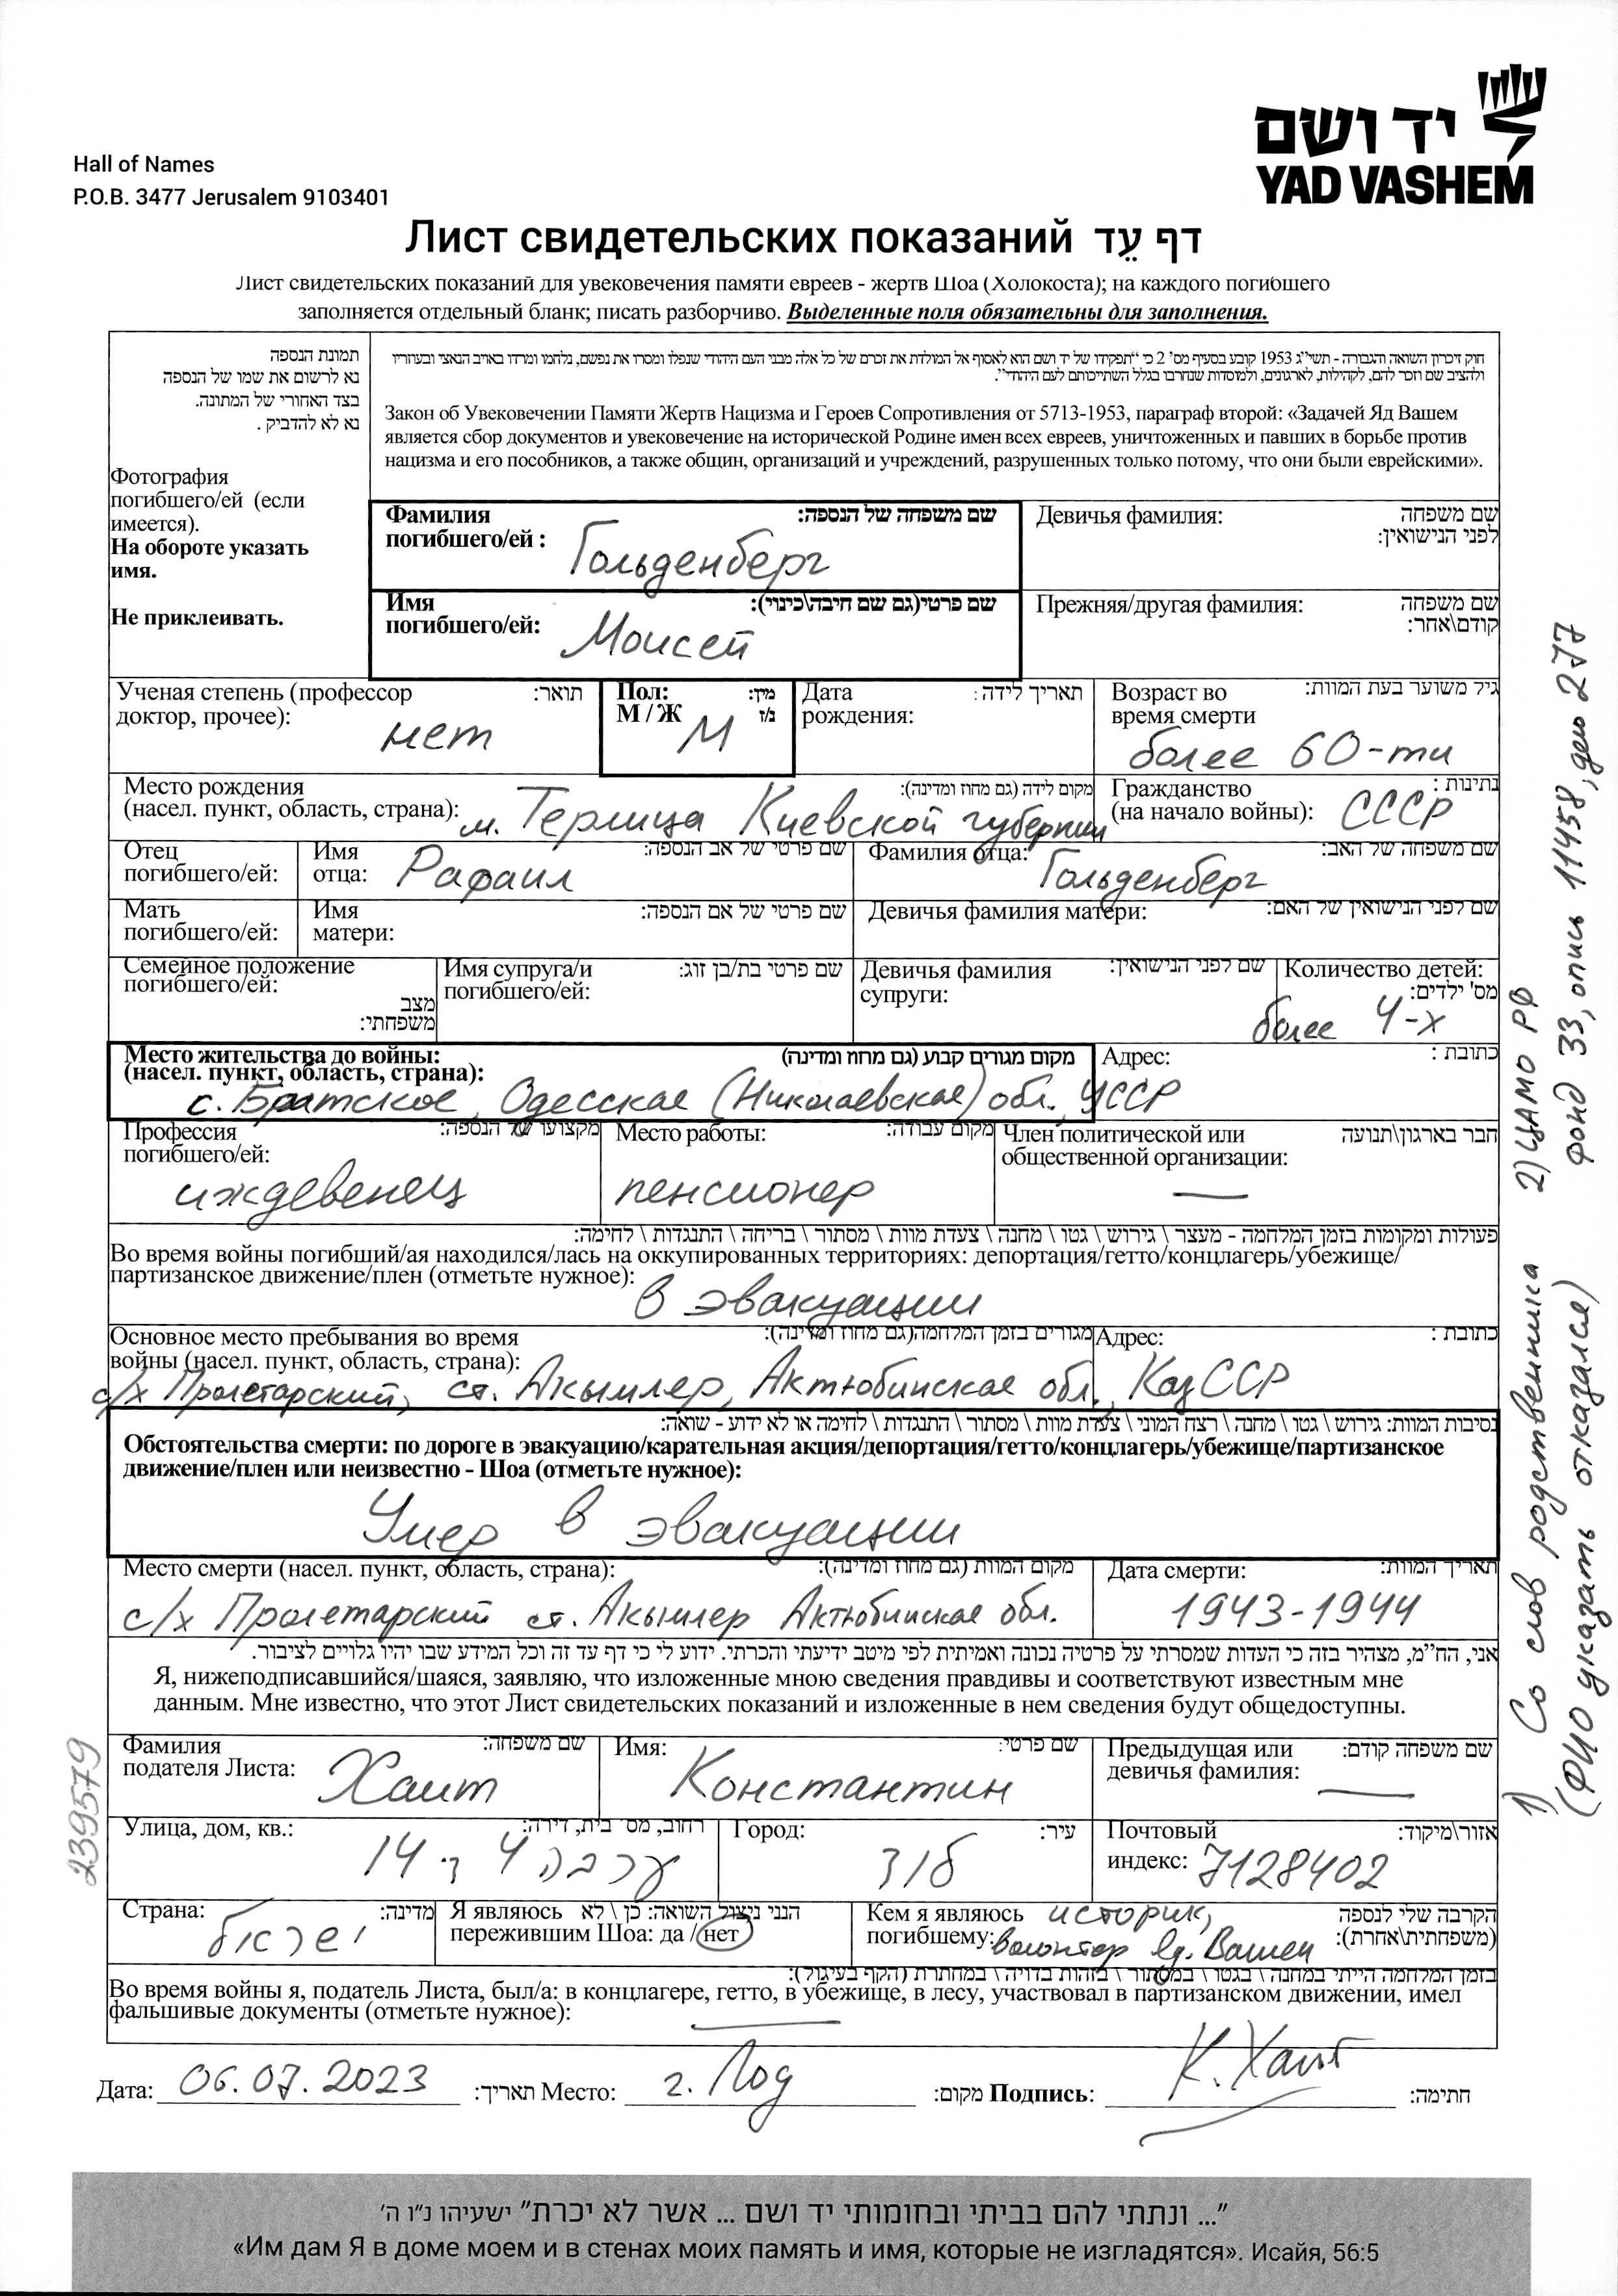 יד ושם
YAD VASHEM
Hall of Names
P.O.B. 3477 Jerusalem 9103401
Лист свидетельских показаний דף עֵד
Лист свидетельских показаний для увековечения памяти евреев - жертв Шоа (Холокоста); на каждого погибшего
заполняется отдельный бланк; писать разборчиво. Выделенные поля обязательны для заполнения.
תמונת הנספה
נא לרשום את שמו של הנספה
בצד האחורי של המתונה.
נא לא להדביק .
Фотография
погибшего/ей (если
имеется).
На обороте указать
имя.
Не приклеивать.
חוק זיכרון השואה והגבורה - תשי"ג 1953 קובע בסעיף מס' 2 כי "תפקידו של יד ושם הוא לאסוף אל המולדת את זכרם של כל אלה מבני העם היהודי שנפלו ומסרו את נפשם, נלחמו ומרדו באויב הנאצי ובעוזריו
ולהציב שם וזכר להם, לקהילות, לארגונים, ולמוסדות שנחרבו בגלל השתייכותם לעם היהודי".
Закон об Увековечении Памяти Жертв Нацизма и Героев Сопротивления от 5713-1953, параграф второй: «Задачей Яд Вашем
является сбор документов и увековечение на исторической Родине имен всех евреев, уничтоженных и павших в борьбе против
нацизма и его пособников, а также общин, организаций и учреждений, разрушенных только потому, что они были еврейскими».
Фамилия שם משפחה של הנספה:
погибшего/ей : Гольденберг
Девичья фамилия: שם משפחה
לפני הנישואין:
Имя שם פרטי(גם שם חיבה\כינוי):
погибшего/ей: Моисей
Прежняя/другая фамилия: שם משפחה
קודם\אחר:
Ученая степень (профессор תואר:
доктор, прочее): нет
Пол: מין:
М / Ж М ז/נ
Дата תאריך לידה :
рождения:
Возраст во גיל משוער בעת המוות:
время смерти
более 60-ти
Место рождения מקום לידה (גם מחוז ומדינה):
(насел. пункт, область, страна): м. Терлица Киевской губернии
Гражданство נתינות :
(на начало войны): СССР
Отец Имя שם פרטי של אב הנספה:
погибшего/ей: отца: Рафаил
Фамилия отца: שם משפחה של האב:
Гольденберг
Мать Имя שם פרטי של אם הנספה:
погибшего/ей: матери:
Девичья фамилия матери: שם לפני הנישואין של האם:
Семейное положение
погибшего/ей:
מצב
משפחתי:
Имя супруга/и שם פרטי בת/בן זוג:
погибшего/ей:
Девичья фамилия שם לפני הנישואין:
супруги:
Количество детей:
מס' ילדים:
более 4-х
Место жительства до войны: מקום מגורים קבוע (גם מחוז ומדינה)
(насел. пункт, область, страна):
Адрес: כתובת :
с. Братское, Одесская (Николаевская) обл., УССР
Профессия מקצועו של הנספה:
погибшего/ей:
иждевенец
Место работы: מקום עבודה:
пенсионер
Член политической или חבר בארגון\תנועה
общественной организации:
—
פעולות ומקומות בזמן המלחמה - מעצר \ גירוש \ גטו \ מחנה \ צעדת מוות \ מסתור \ בריחה \ התנגדות \ לחימה:
Во время войны погибший/ая находился/лась на оккупированных территориях: депортация/гетто/концлагерь/убежище/
партизанское движение/плен (отметьте нужное):
в эвакуации
Основное место пребывания во время מגורים בזמן המלחמה(גם מחוז ומדינה):
войны (насел. пункт, область, страна):
Адрес: כתובת :
с/х Пролетарский, ст. Акымлер, Актюбинская обл., КазССР
נסיבות המוות: גירוש \ גטו \ מחנה \ רצח המוני \ צעדת מוות \ מסתור \ התנגדות \ לחימה או לא ידוע - שואה:
Обстоятельства смерти: по дороге в эвакуацию/карательная акция/депортация/гетто/концлагерь/убежище/партизанское
движение/плен или неизвестно - Шоа (отметьте нужное):
Умер в эвакуации
Место смерти (насел. пункт, область, страна): מקום המוות (גם מחוז ומדינה):
с/х Пролетарский ст. Акымлер Актюбинская обл.
Дата смерти: תאריך המוות:
1943-1944
אני, הח"מ, מצהיר בזה כי העדות שמסרתי על פרטיה נכונה ואמיתית לפי מיטב ידיעתי והכרתי. ידוע לי כי דף עד זה וכל המידע שבו יהיו גלויים לציבור.
Я, нижеподписавшийся/шаяся, заявляю, что изложенные мною сведения правдивы и соответствуют известным мне
данным. Мне известно, что этот Лист свидетельских показаний и изложенные в нем сведения будут общедоступны.
Фамилия שם משפחה:
подателя Листа: Хаит
Имя: שם פרטי:
Константин
Предыдущая или שם משפחה קודם:
девичья фамилия: —
Улица, дом, кв.: רחוב, מס' בית, דירה:
ערבה 4 ד 14
Город: עיר:
לוד
Почтовый אזור\מיקוד:
индекс: 7128402
Страна: מדינה:
ישראל
Я являюсь הנני ניצול השואה: כן \ לא
пережившим Шоа: да / нет
Кем я являюсь историк, הקרבה שלי לנספה
погибшему: волонтер Яд. Вашем (משפחתית\אחרת):
בזמן המלחמה הייתי במחנה \ בגטו \ במסתור \ בזהות בדויה \ במחתרת (הקף בעיגול):
Во время войны я, податель Листа, был/а: в концлагере, гетто, в убежище, в лесу, участвовал в партизанском движении, имел
фальшивые документы (отметьте нужное): —
Дата: 06.07.2023 תאריך: Место: г. Лод מקום: Подпись: К. Хаит חתימה:
239579
1) Со слов родственника
(ФИО указать отказался)
2) ЦАМО РФ
фонд 33, опись 11458, дело 277
"... ונתתי להם בביתי ובחומותי יד ושם ... אשר לא יכרת" ישעיהו נ"ו ה'
«Им дам Я в доме моем и в стенах моих память и имя, которые не изгладятся». Исайя, 56:5